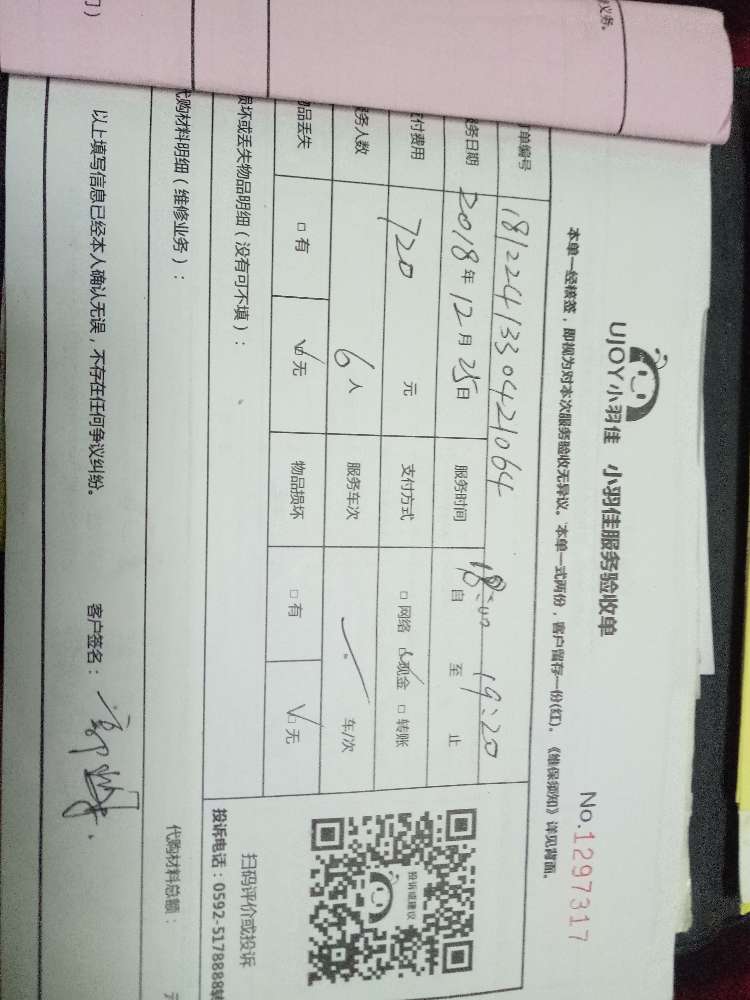 UJOY小羽佳 小羽佳服务验收单
No.1297317
本单一经核签,即视为对本次服务验收无异议。本单一式两份,客户留存一份(红)。《维保须知》详见背面。
单编号 1812241330421064
务日期 2018年12月25日 服务时间 自18:00 至19:20止
付费用 720元 支付方式 □网络 ☑现金 □转账
务人数 6人 服务车次 车/次
品丢失 □有 ☑无 物品损坏 □有 ☑无
损坏或丢失物品明细(没有可不填):
代购材料明细(维修业务):
代购材料总额:
投诉或建议
扫码评价或投诉
投诉电话:0592-5178888转
以上填写信息已经本人确认无误,不存在任何争议纠纷。 客户签名:
义务。